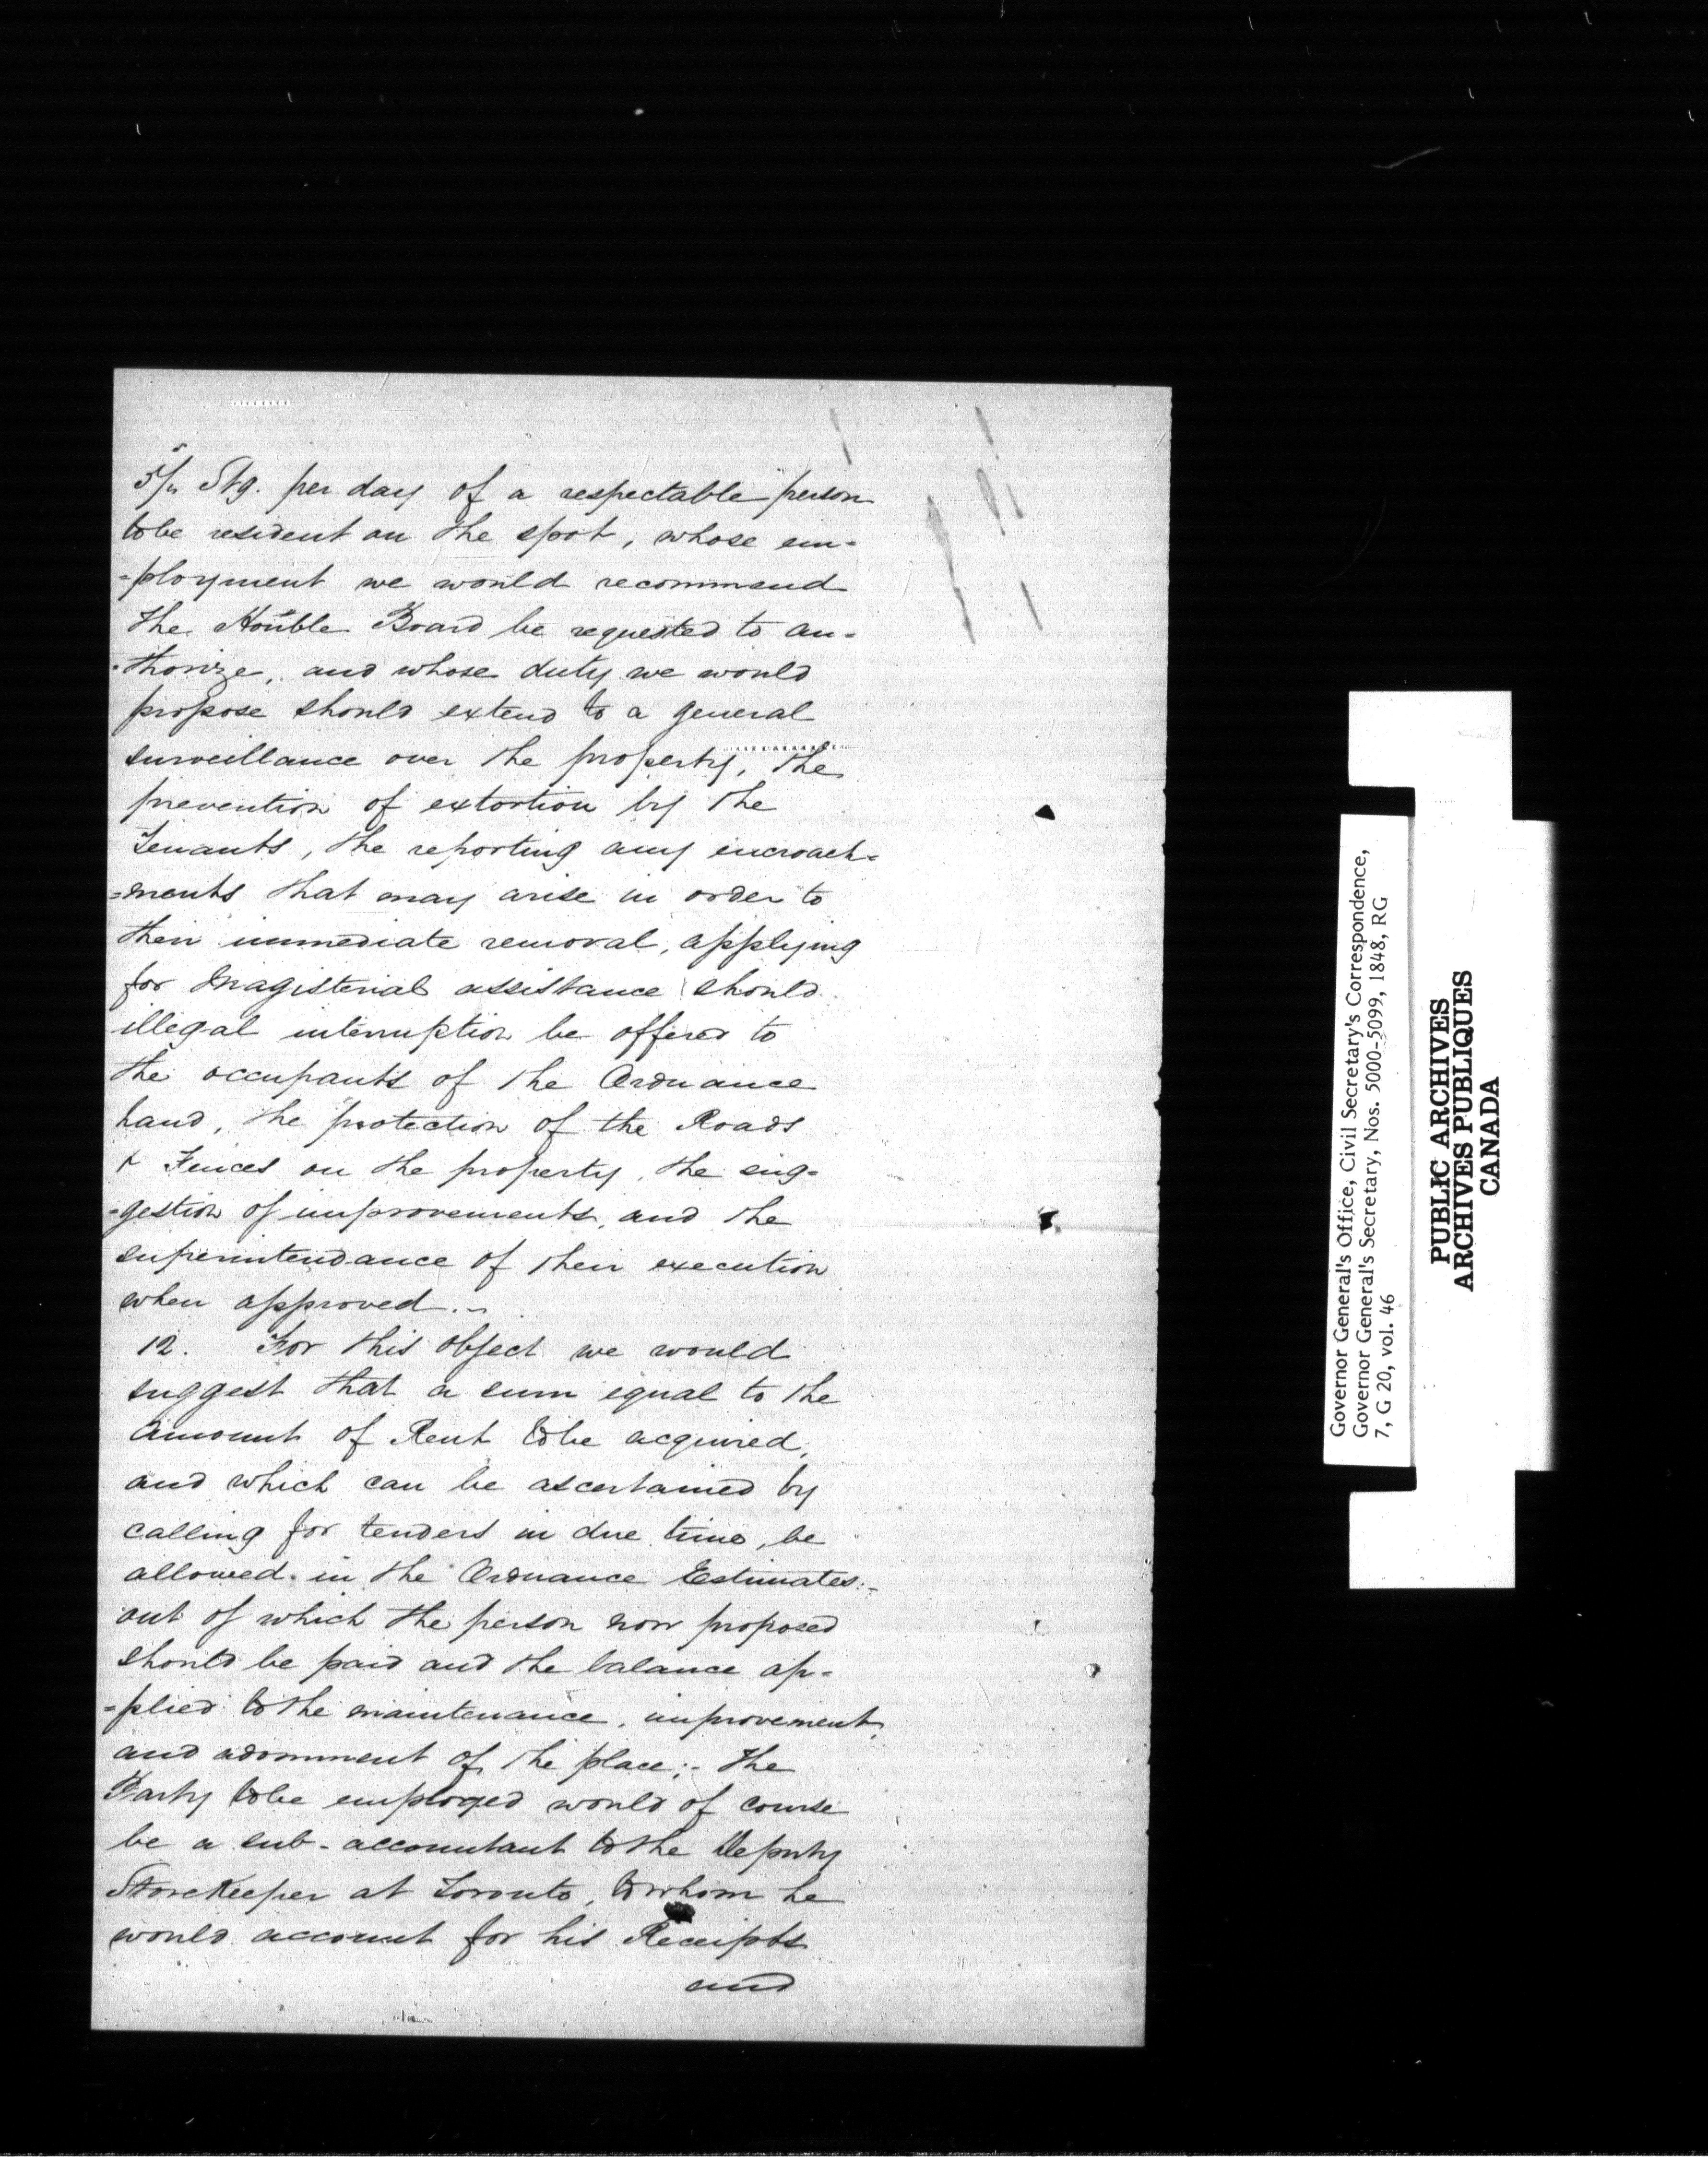 5/ Stg. per day of a respectable person
to be resident on the spot, whose em-
=ployment we would recommend
the Honble Board be requested to au-
-thorize, and whose duty we would
propose should extend to a general
surveillance over the property, the
prevention of extortion by the
Tenants, the reporting any encroach=
=ments that may arise in order to
their immediate removal, applying
for Magisterial assistance should
illegal interruption be offered to
the occupants of the Ordnance
land, the protection of the Roads
& Fences on the property, the sug=
=gestion of improvements, and the
superintendance of their execution
when approved.
12. For this object we would
suggest that a sum equal to the
amount of Rent to be acquired,
and which can be ascertained by
calling for tenders in due time, be
allowed in the Ordnance Estimates:-
out of which the person now proposed
should be paid and the balance ap-
=plied to the maintenance, improvement,
and adornment of the place;- the
Party to be employed would of course
be a sub-accountant to the Deputy
StoreKeeper at Toronto, to whom he
would account for his Receipts
and
Governor General's Office, Civil Secretary's Correspondence,
Governor General's Secretary, Nos. 5000-5099, 1848, RG
7, G 20, vol. 46
PUBLIC ARCHIVES
ARCHIVES PUBLIQUES
CANADA